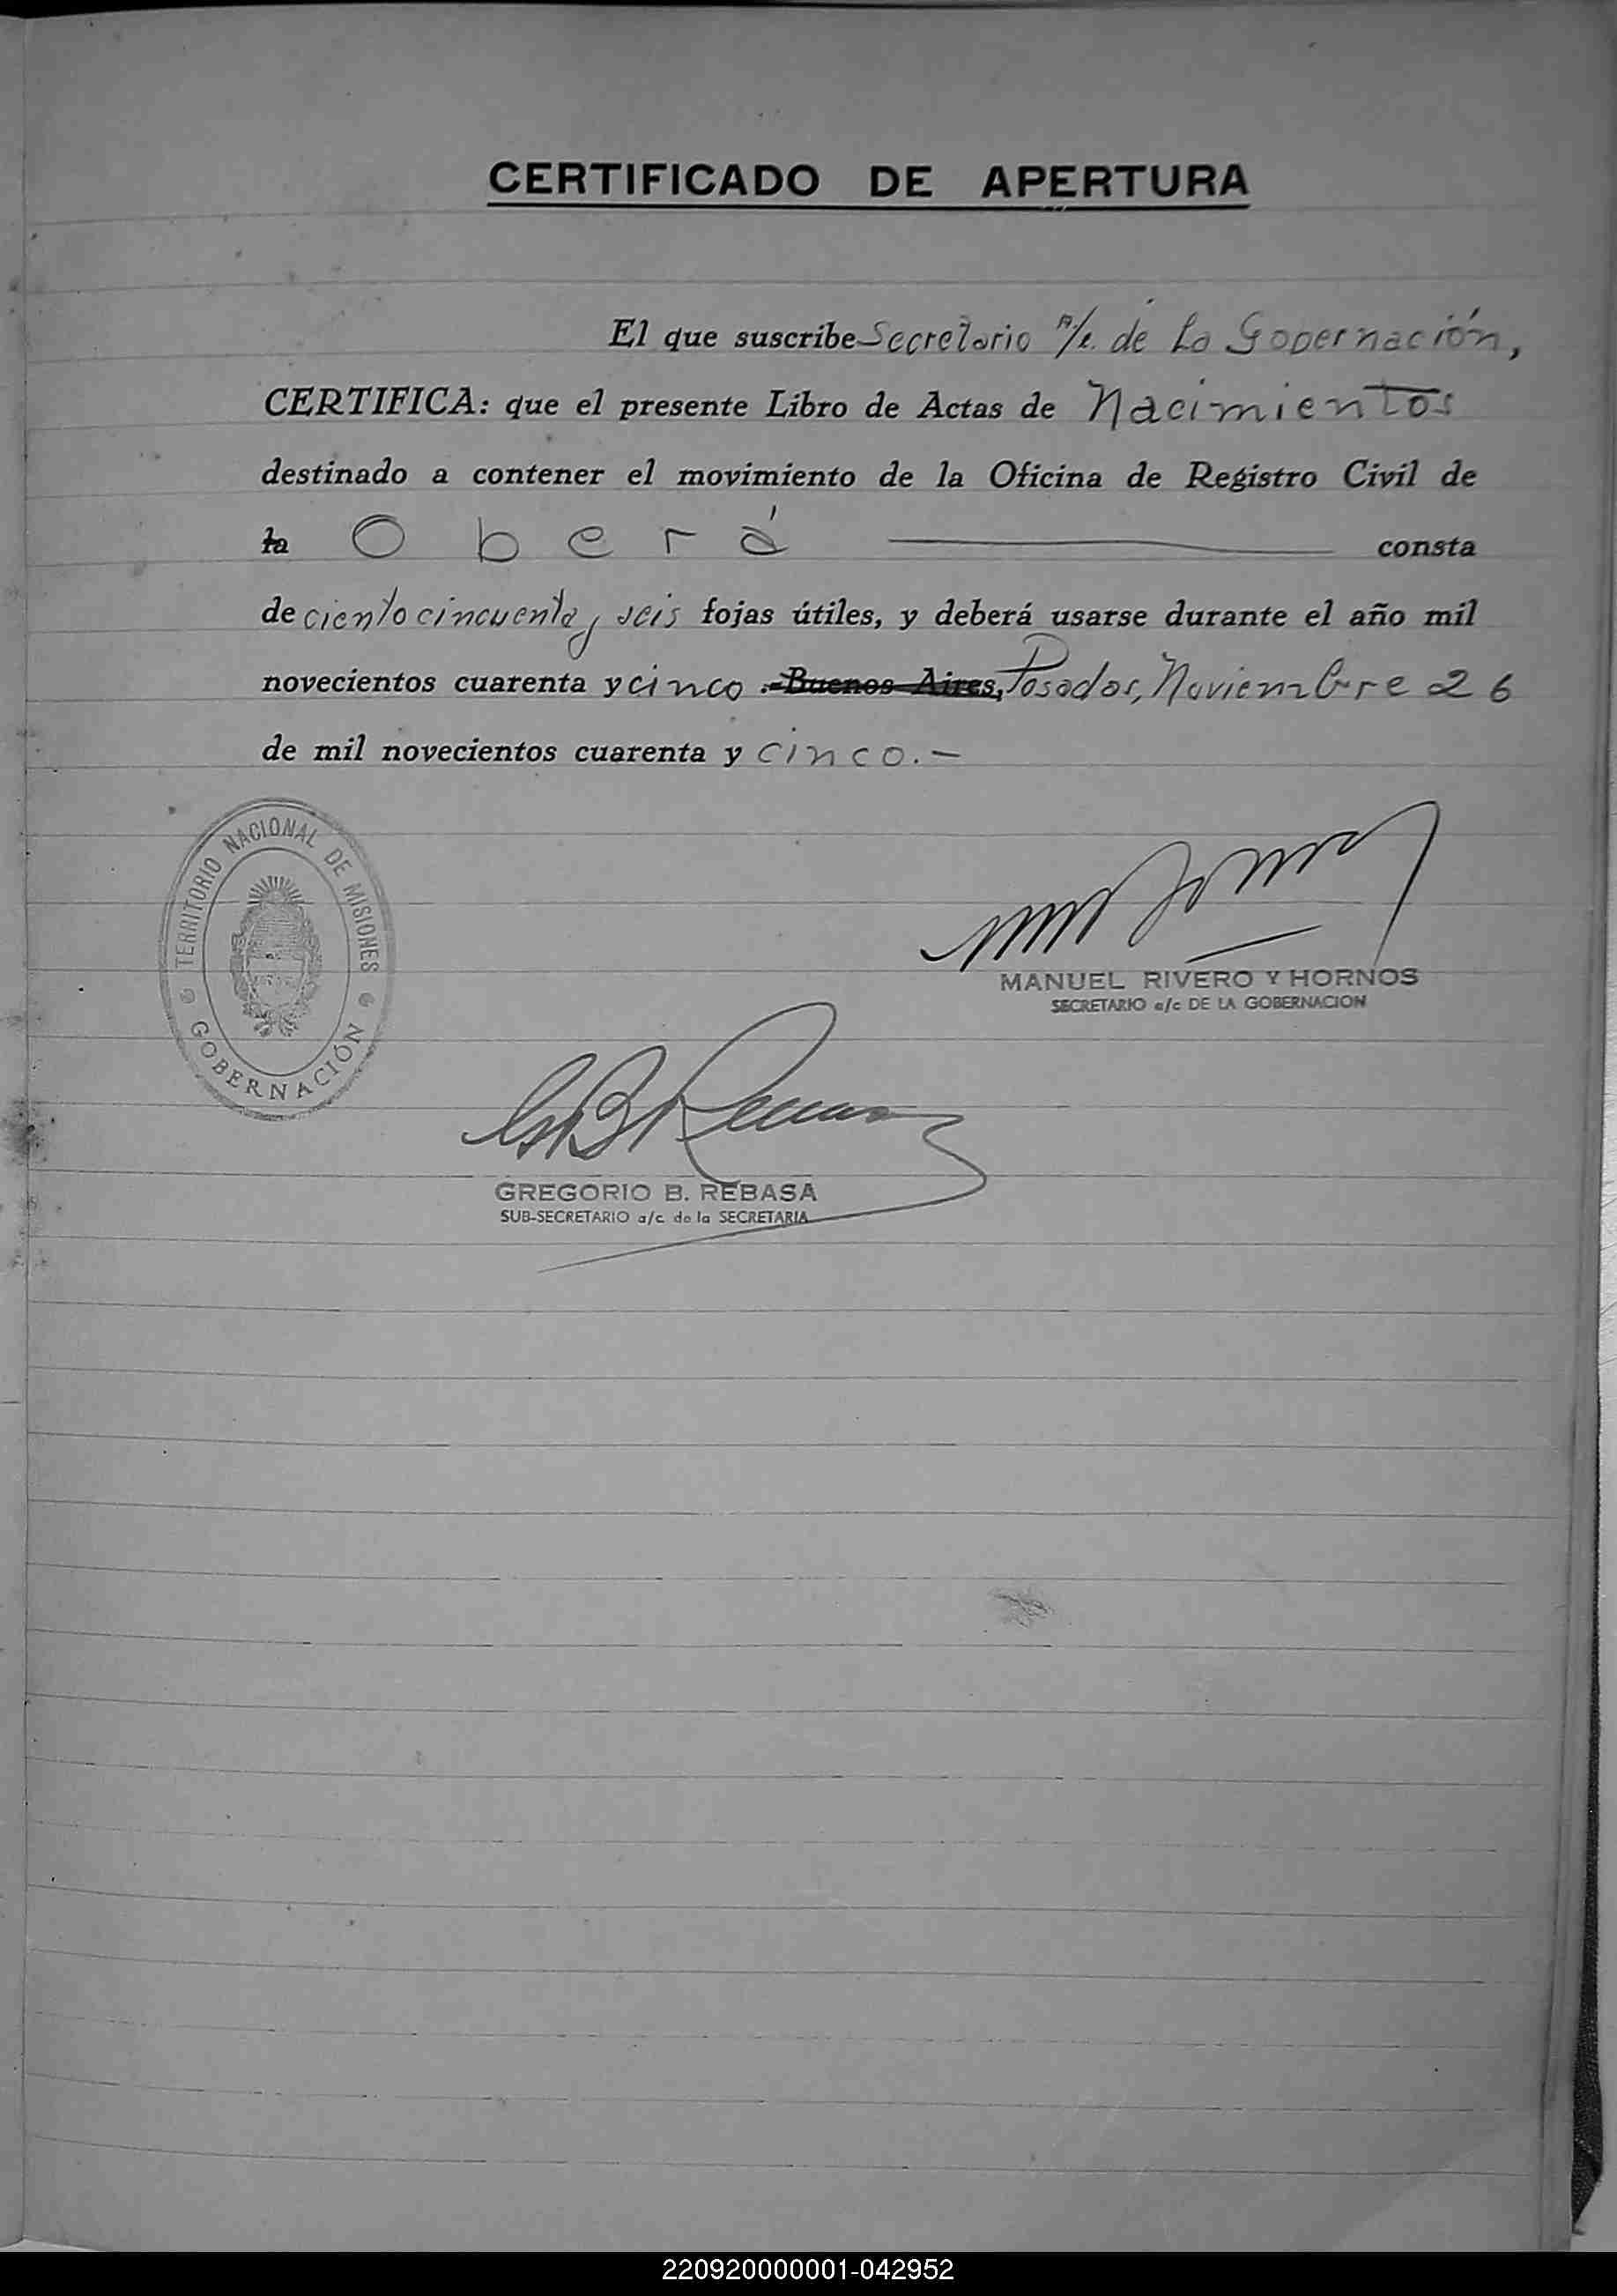 CERTIFICADO DE APERTURA
El que suscribe Secretario a/c. de la Gobernación,
CERTIFICA: que el presente Libro de Actas de Nacimientos
destinado a contener el movimiento de la Oficina de Registro Civil de
la Oberá consta
de ciento cincuenta y seis fojas útiles, y deberá usarse durante el año mil
novecientos cuarenta y cinco .-Buenos Aires, Posadas, Noviembre 26
de mil novecientos cuarenta y cinco.-
TERRITORIO NACIONAL DE MISIONES
GOBERNACIÓN
MANUEL RIVERO Y HORNOS
SECRETARIO a/c DE LA GOBERNACION
GREGORIO B. REBASA
SUB-SECRETARIO a/c de la SECRETARIA
220920000001-042952